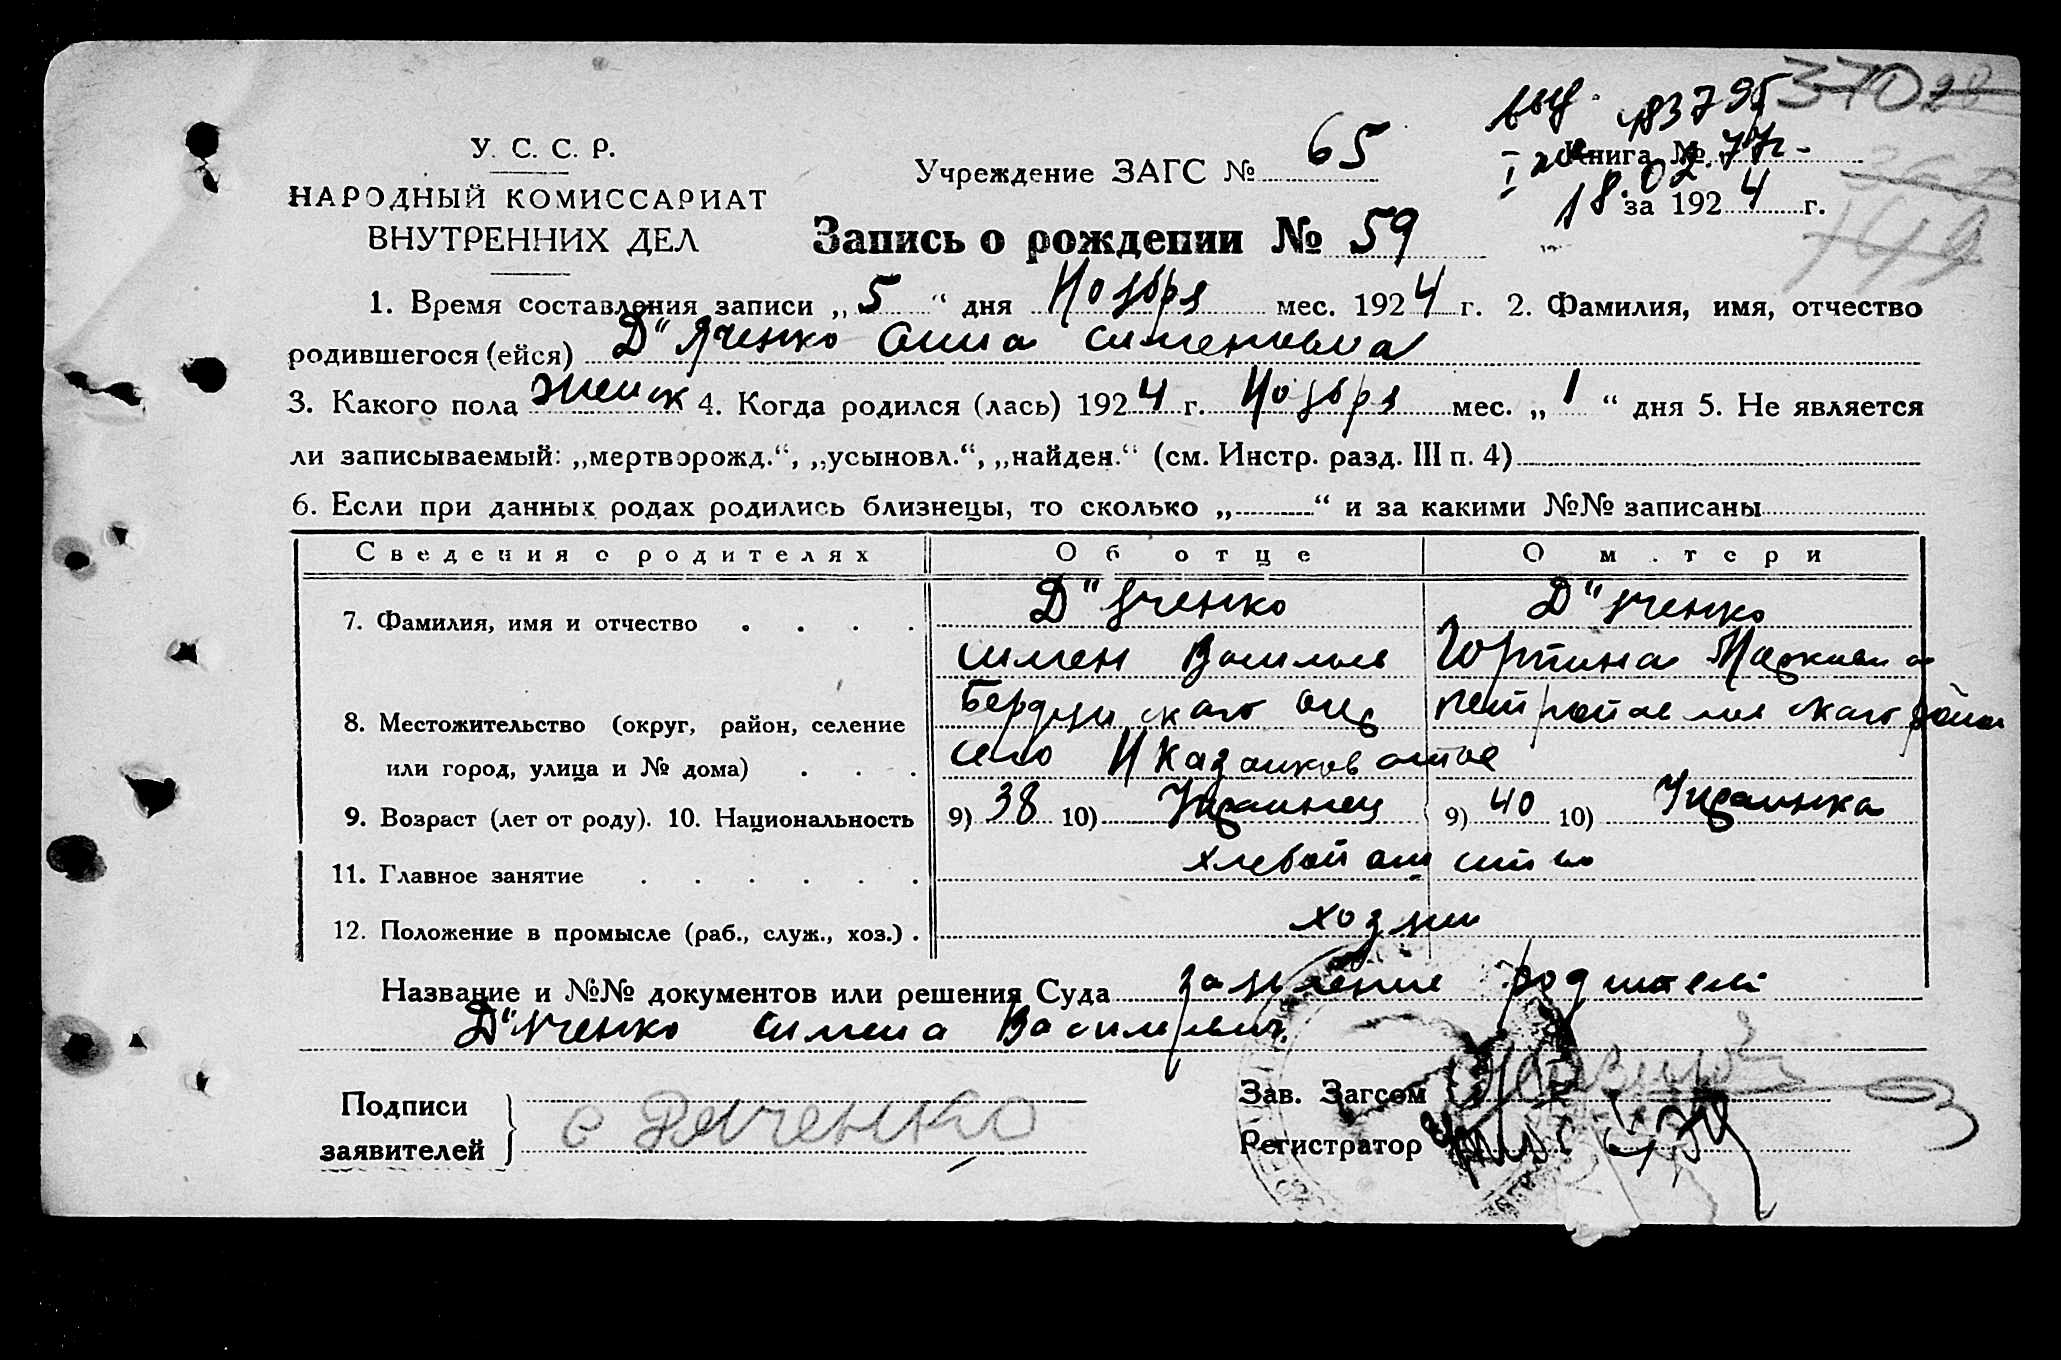 У. С. С. Р.
НАРОДНЫЙ КОМИССАРИАТ
ВНУТРЕННИХ ДЕЛ
Учреждение ЗАГС № 65
37028
Книга №
18.02.77г.
за 1924 г.
149
Запись о рождении № 59
1. Время составления записи „5“ дня Ноября мес. 1924 г. 2. Фамилия, имя, отчество
родившегося (ейся) Д"Яченко Анна Сименовна
3. Какого пола женск 4. Когда родился (лась) 1924 г. Ноября мес. „1“ дня 5. Не является
ли записываемый: „мертворожд.“, „усыновл.“, „найден.“ (см. Инстр. разд. III п. 4)
6. Если при данных родах родились близнецы, то сколько „ “ и за какими №№ записаны
Сведения о родителях Об отце О м.тери
7. Фамилия, имя и отчество Д"яченко Д"яченко
Симен Васильев
8. Местожительство (округ, район, селение
или город, улица и № дома) село
9. Возраст (лет от роду). 10. Национальность 9) 38 10) Украинец 9) 40 10) Украинка
11. Главное занятие хлебопашество
12. Положение в промысле (раб., служ., хоз.)
Название и №№ документов или решения Суда заявление родителя
Д"Яченко Симена Васильевич
Подписи
заявителей
с Дяченко
Зав. Загсом
Регистратор